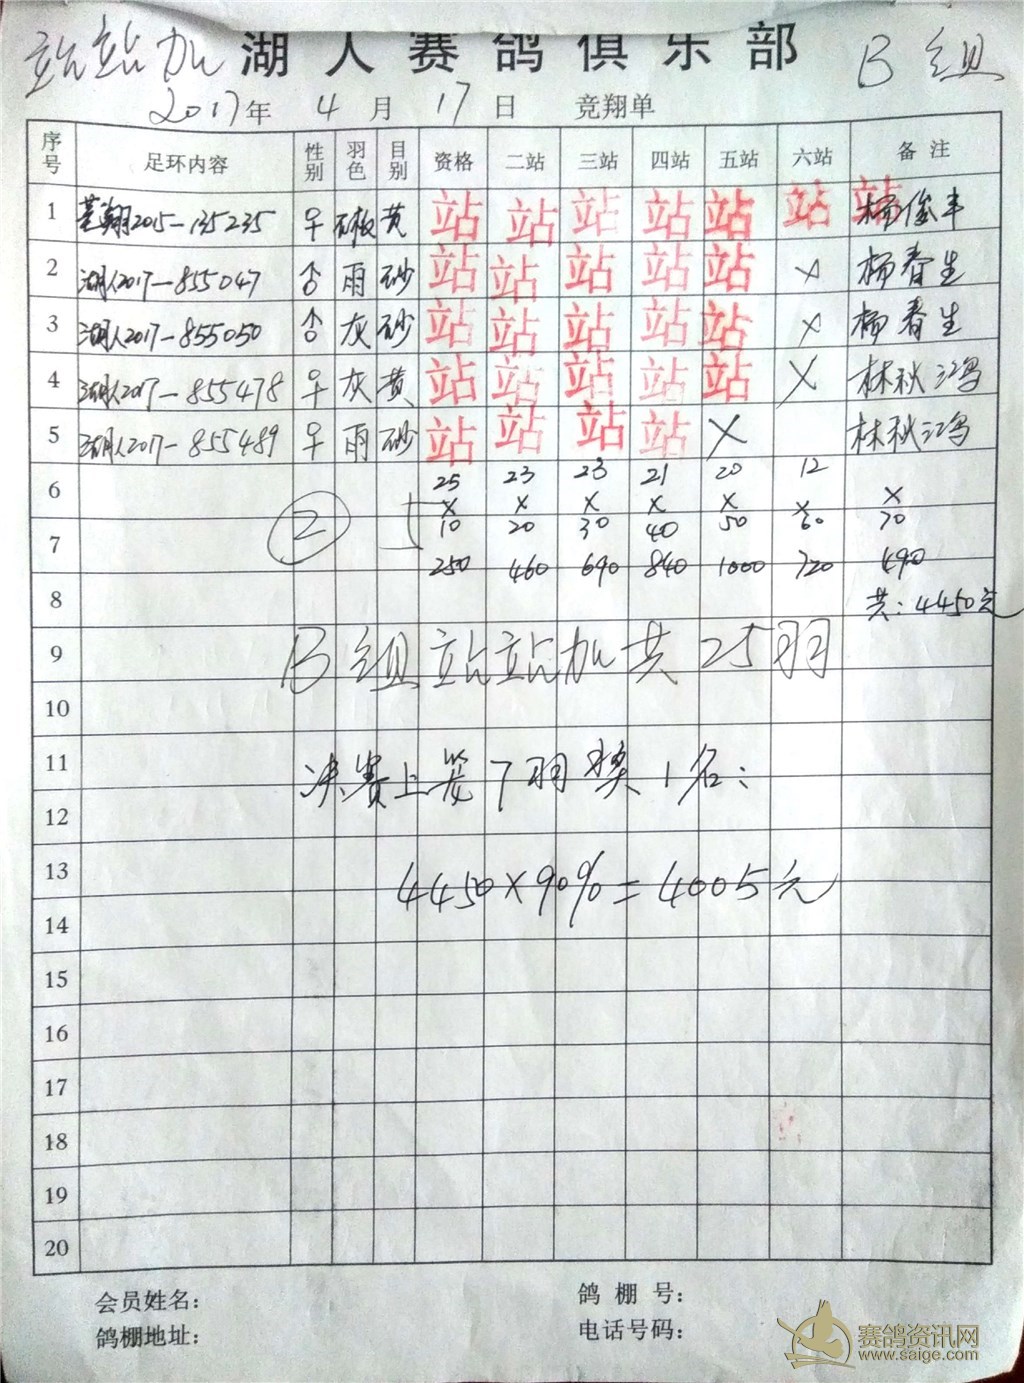 站站加 湖人赛鸽俱乐部 B组
2017年 4月 17日 竞翔单
序号 足环内容 性别 羽色 目别 资格 二站 三站 四站 五站 六站 备注
1 2015-135235 ♀ 黄 站 站 站 站 站 站 站 杨俊丰
2 湖人2017-855047 ♂ 雨 砂 站 站 站 站 站 × 杨春生
3 湖人2017-855050 ♂ 灰 砂 站 站 站 站 站 × 杨春生
4 湖人2017-855478 ♀ 灰 黄 站 站 站 站 站 × 林秋鸿
5 湖人2017-855489 ♀ 雨 砂 站 站 站 站 × 林秋鸿
6 25 23 23 21 20 12
× × × × × × ×
7 ② 10 20 30 40 50 60 70
250 460 690 840 1000 720 490
8 共:4450元
9 B组站站加共25羽
10
11 决赛上笼7羽奖1名:
12
13 4450×90%=4005元
14
15
16
17
18
19
20
会员姓名: 鸽棚号:
鸽棚地址: 电话号码:
赛鸽资讯网
www.saige.com